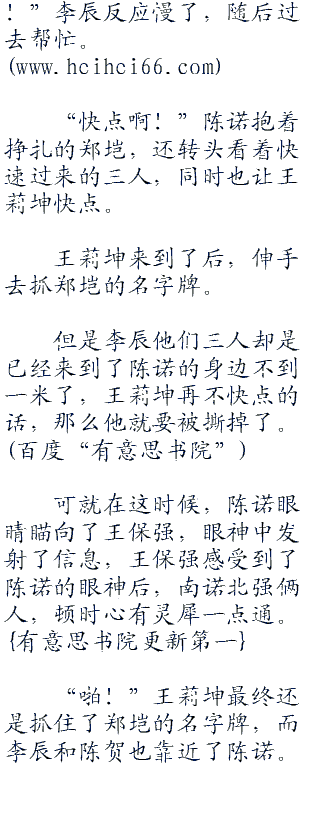 ！”李辰反应漫了，随后过
去帮忙。
(www.hcihci66.com)
“快点啊！”陈诺抱着
挣扎的郑垲，还转头看着快
速过来的三人，同时也让王
莉坤快点。
王莉坤来到了后，伸手
去抓郑垲的名字牌。
但是李辰他们三人却是
已经来到了陈诺的身边不到
一米了，王莉坤再不快点的
话，那么他就要被撕掉了。
(百度“有意思书院”)
可就在这时候，陈诺眼
睛瞄向了王保强，眼神中发
射了信息，王保强感受到了
陈诺的眼神后，南诺北强俩
人，顿时心有灵犀一点通。
{有意思书院更新第一}
“啪！”王莉坤最终还
是抓住了郑垲的名字牌，而
李辰和陈贺也靠近了陈诺。